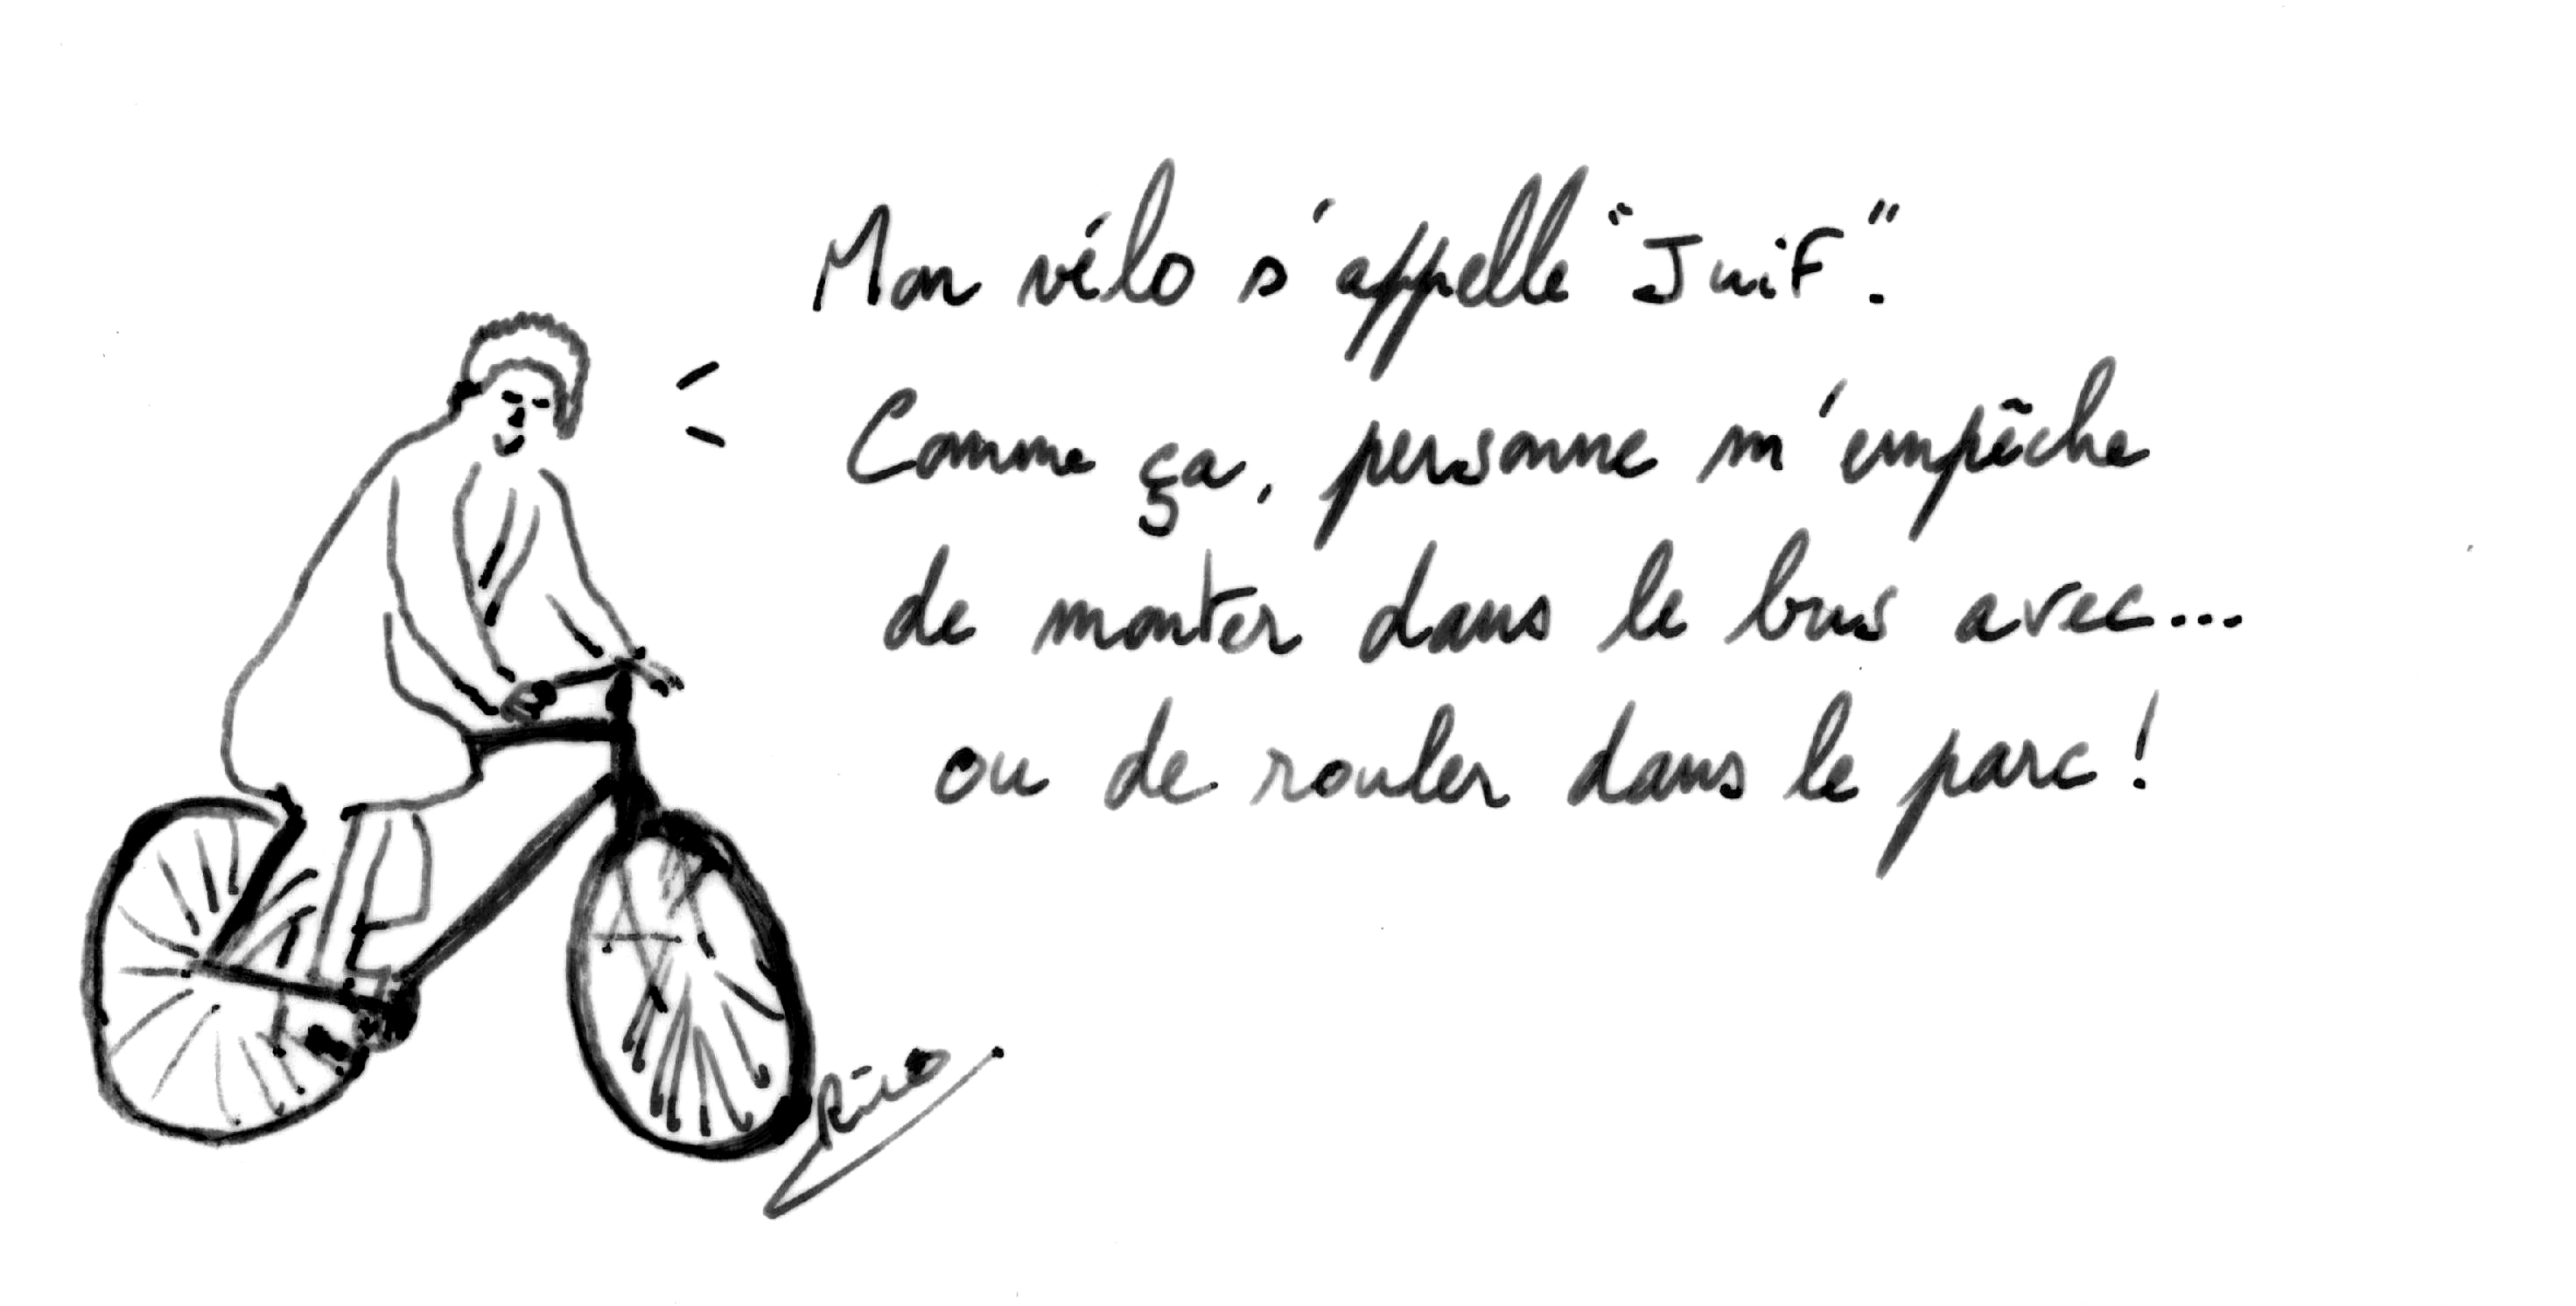 Mon vélo s'appelle "JuiF".
Comme ça, personne m'empêche
de monter dans le bus avec...
ou de rouler dans le parc !